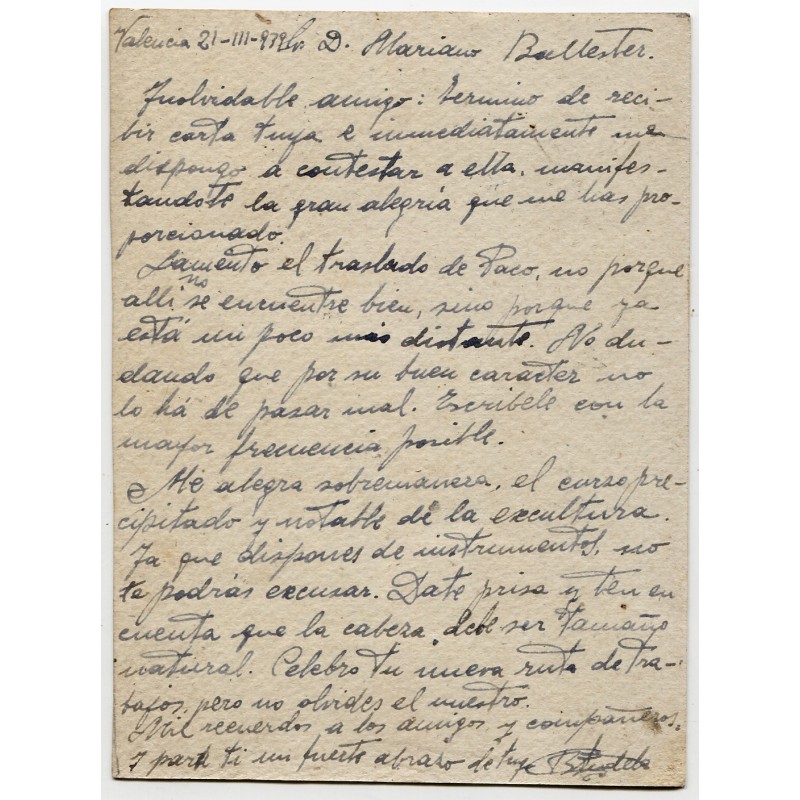 Valencia 21-III-939 Sr D. Mariano Ballester.
Inolvidable amigo: termino de reci-
bir carta tuya e inmediatamente me
dispongo a contestar a ella, manifes-
tandote la gran alegría que me has pro-
porcionado.
Lamento el traslado de Paco, no porque
allí no se encuentre bien, sino porque ya
está un poco más distante. No du-
dando que por su buen caracter no
lo há de pasar mal. Escribele con la
mayor frecuencia posible.
Me alegra sobremanera, el curso pre-
cipitado y notable de la excultura.
Ya que dispones de instrumentos, no
te podrás excusar. Date prisa y ten en
cuenta que la cabeza, debe ser tamaño
natural. Celebro tu nueva ruta de tra-
bajos, pero no olvides el nuestro.
Mil recuerdos a los amigos y compañeros.
Y para ti un fuerte abrazo de tuyo